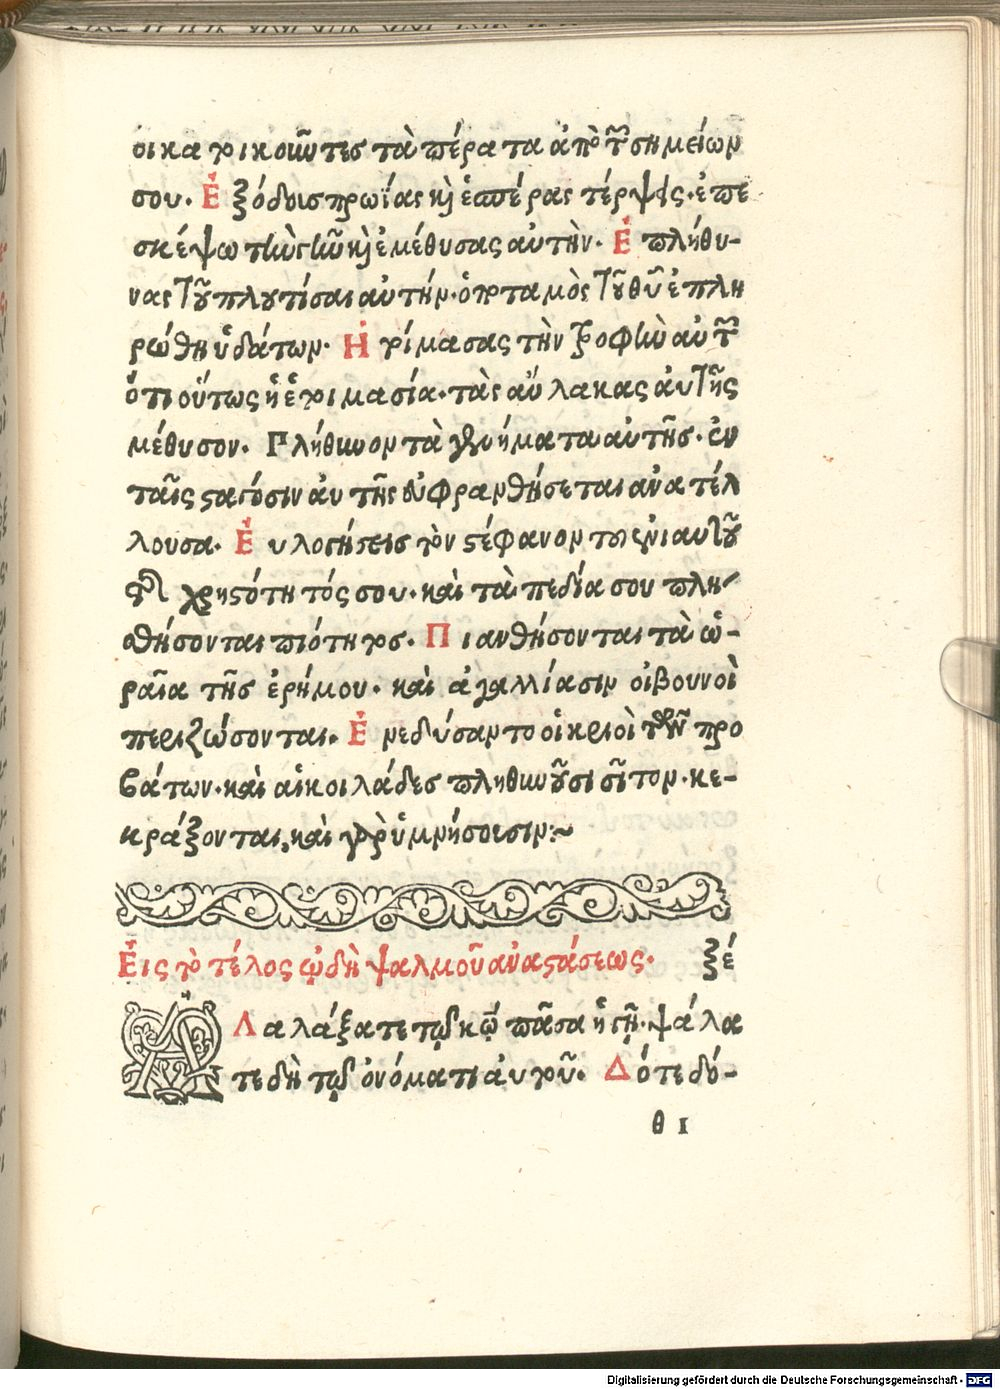 οικατοικοῦντες τὰ πέρατα ἀπὸ τῶν σημείων
σου. Ἐξόδους πρωΐας καὶ ἑσπέρας τέρψεις. ἐπε
σκέψω τὴν γῆν καὶ ἐμέθυσας αὐτὴν. Ἐπλήθυ-
νας τοῦ πλουτίσαι αὐτήν. ὁ ποταμὸς τοῦ θεοῦ ἐπλη
ρώθη ὑδάτων. Ἡτοίμασας τὴν τροφὴν αὐτῶν
ὅτι οὕτως ἡ ἑτοιμασία. τὰς αὔλακας αὐτῆς
μέθυσον. Πλήθυνον τὰ γεννήματα αὐτῆς. ἐν
ταῖς σταγόσιν αὐτῆς εὐφρανθήσεται ἀνατέλ
λουσα. Εὐλογήσεις τὸν στέφανον τοῦ ἐνιαυτοῦ
τῆς χρηστότητός σου. καὶ τὰ πεδία σου πλη-
σθήσονται πιότητος. Πιανθήσονται τὰ ὡ-
ραῖα τῆς ἐρήμου. καὶ ἀγαλλίασιν οἱ βουνοὶ
περιζώσονται. Ἐνεδύσαντο οἱ κριοὶ τῶν προ
βάτων. καὶ αἱ κοιλάδες πληθυνοῦσι σῖτον. κε-
κράξονται, καὶ γὰρ ὑμνήσουσιν:~
Εἰς τὸ τέλος ᾠδὴ ψαλμοῦ ἀναστάσεως. ξέ
ἈΛαλάξατε τῷ κῷ πᾶσα ἡ γῆ. ψάλα
τε δὴ τῷ ὀνόματι αὐτοῦ. Δότε δό-
θ ι
Digitalisierung gefördert durch die Deutsche Forschungsgemeinschaft - DFG